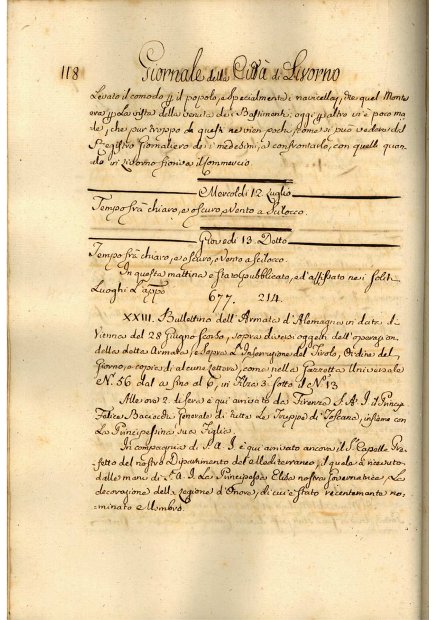 118 Giornale della Città di Livorno
Levato il comodo p il popolo, e specialmente i navicellaj, che quel Mont
era p la vista della venuta dei Bastimenti; oggi p altro vi è poco ma
le, che pur troppo di questi ne vien pochi, come si può vedere dal
Registro Giornaliero de i medesimi, a confrontarlo, con quelli quan
do in Livorno fioriva il Commercio
Mercoldì 12. Luglio
Tempo frà chiaro, e oscuro, e Vento a Scilocco.
Giovedì 13. Detto
Tempo frà chiaro, e oscuro, e Vento a Scilocco.
In questa mattina è stato pubblicato, e d'affissato nei soliti
Luoghi L'appo
677. 214.
XXIII. Bullettino dell'Armata d'Alemagna in data di
Vienna del 28 Giugno scorso, sopra diversi oggetti dell'operazion
della detta Armata, e sopra L'Insurrezione del Tirolo, Ordine del
Giorno, e copia di alcune lettere, come nella Gazzetta Universale
N.º 56 dal a fino al 6, in Filza 3. sotto d N.º 13
Alle ore 2. di sera è qui arrivato da Firenze S. A. I. il Princip
Felice Baciocchi Generale di tutta Le Truppe di Toscana, insieme con
La Principessina sua Figlia.
In compagnia di S. A. I. è qui arrivato ancora il S.r Capelle Pre
fetto del nostro Dipartimento del Mediterraneo, il quale à ricevuto
dalle mani di S. A. I. La Principessa Elisa nostra Governatrice, La
decorazione della Legione d'Onore, di cui è stato recentemente no
minato Membro.